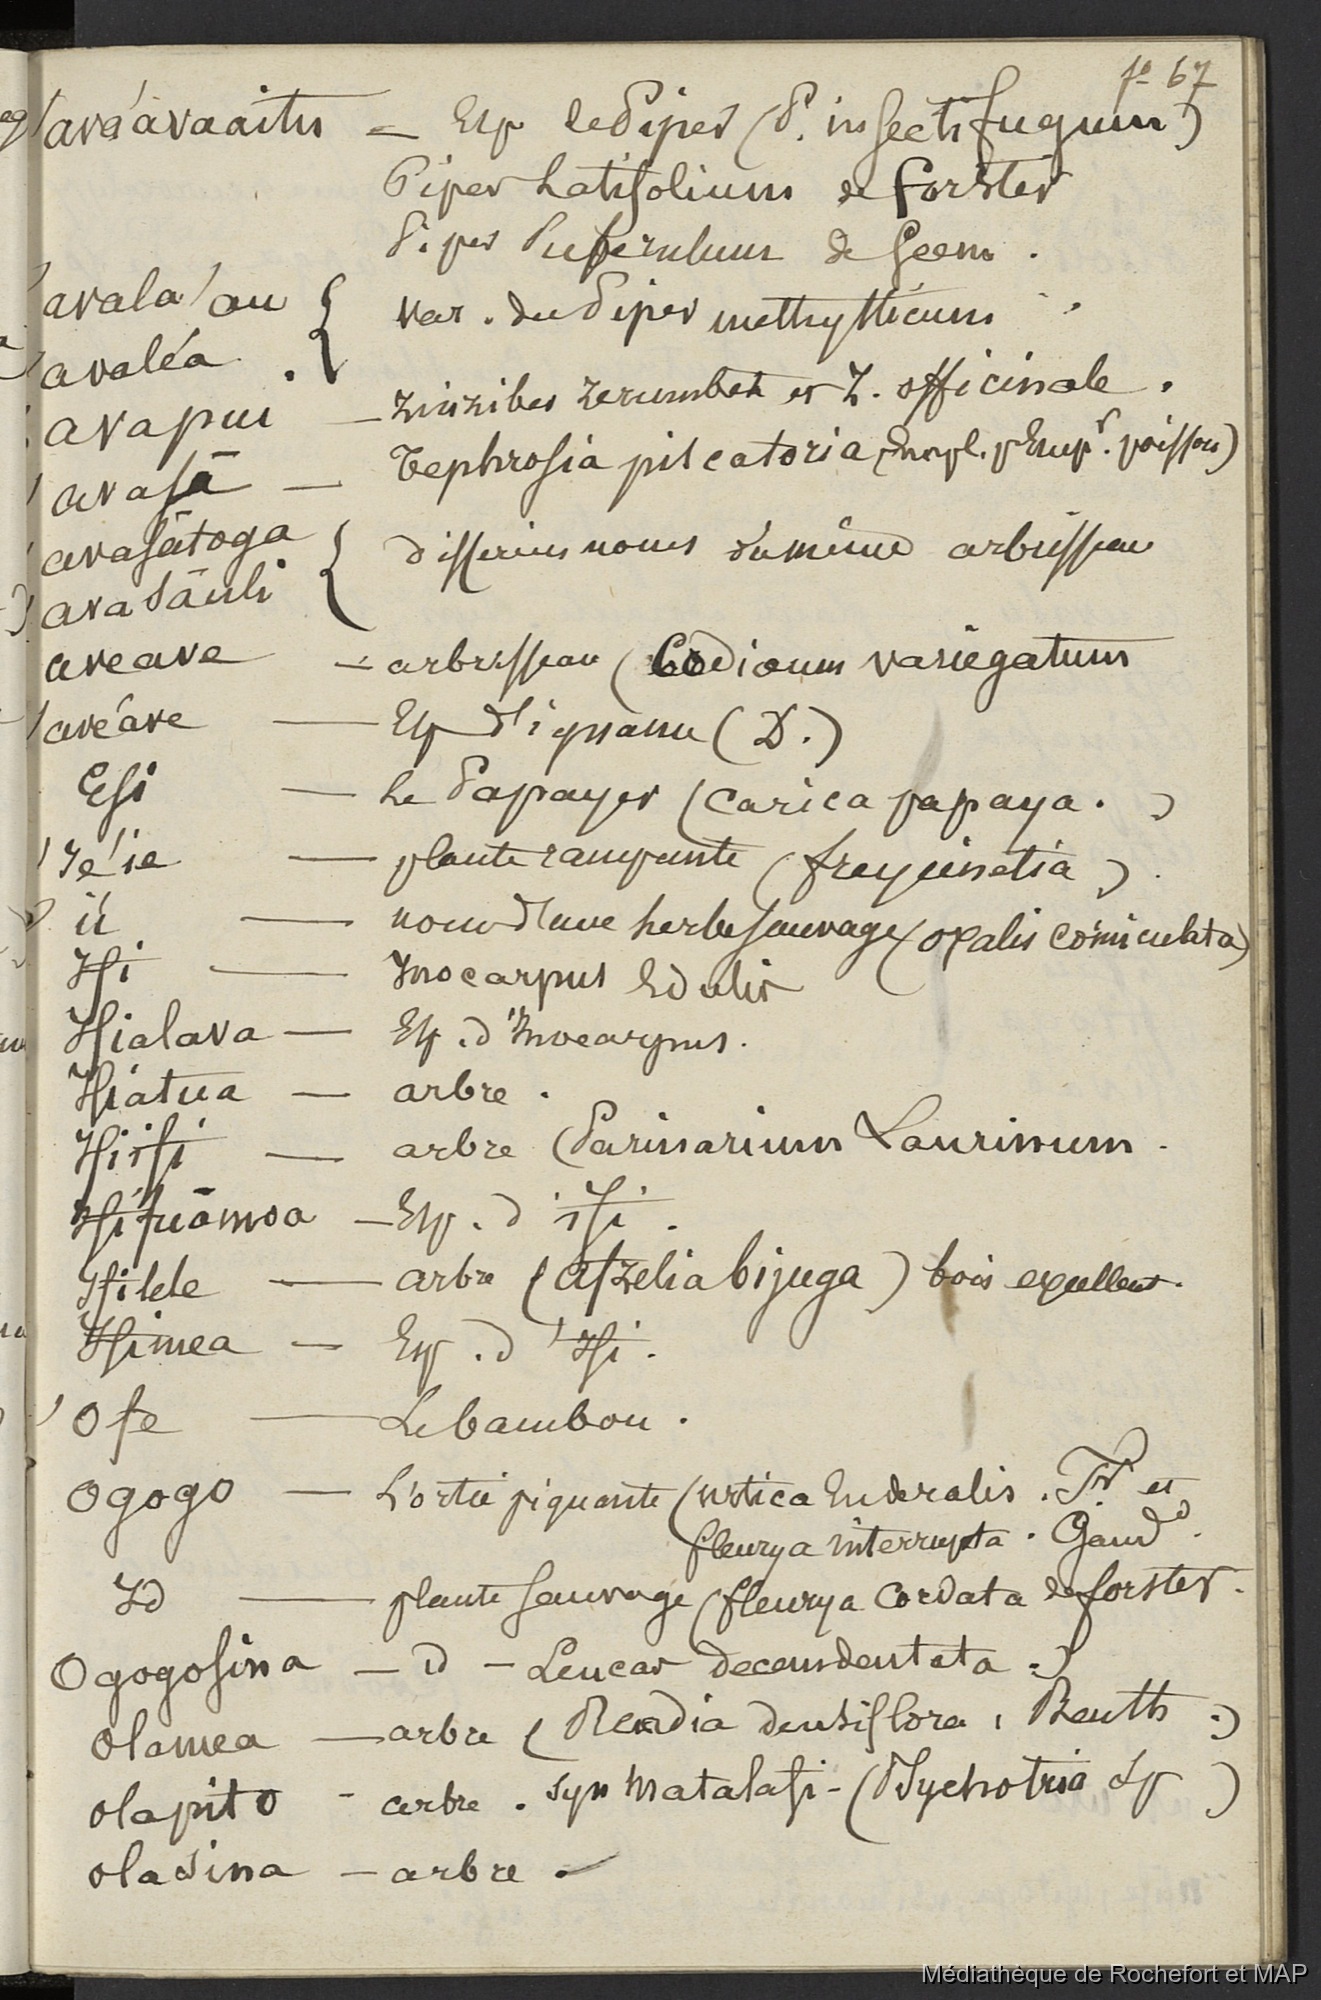 fo 67
'ava'avaaitu — Esp de Piper (P. insectifugum)
Piper Latifolium de Forster
Piper Puberulum de Seem.
'avala'au { var. du Piper methysticum
avaléa
avapui — Zinziber Zerumbet et Z. officinale.
avasā — Tephrosia piscatoria, (empl. p Emp.r poisson)
avasātoga { differens noms d'un même arbrisseau
avasāuli
aveave — arbrisseau (Codioeum variegatum
'ave'ave — Esp d'igname (D.)
Esi — Le Papayer (Carica papaya.)
'Ie'ie — plante rampante (freycinetia)
ii — nom d'une herbe sauvage (oxalis corniculata)
Ifi — Inocarpus Edulis
Ifialava — Esp. d'Inocarpus.
Ifiatua — arbre.
Ifiifi — arbre (Parinarium Laurinum.
Ififuāmoa — Esp. d'ifi.
Ifilele — arbre (afzelia bijuga) bois excellent.
Ifimea — Esp. d'Ifi.
'Ofe — Le bambou.
Ogogo — L'ortie piquante (urtica Enderalis. Fr et
fleurya interrupta. Gaud.
Id — plante sauvage (fleurya Cordata de forster.
Ogogosina — id — Leucas decemdentata.)
olamea — arbre (Randia densiflora, Benth.)
olapito - arbre. syn Matalafi - (Psychotria Sp)
olasina — arbre.
Médiathèque de Rochefort et MAP